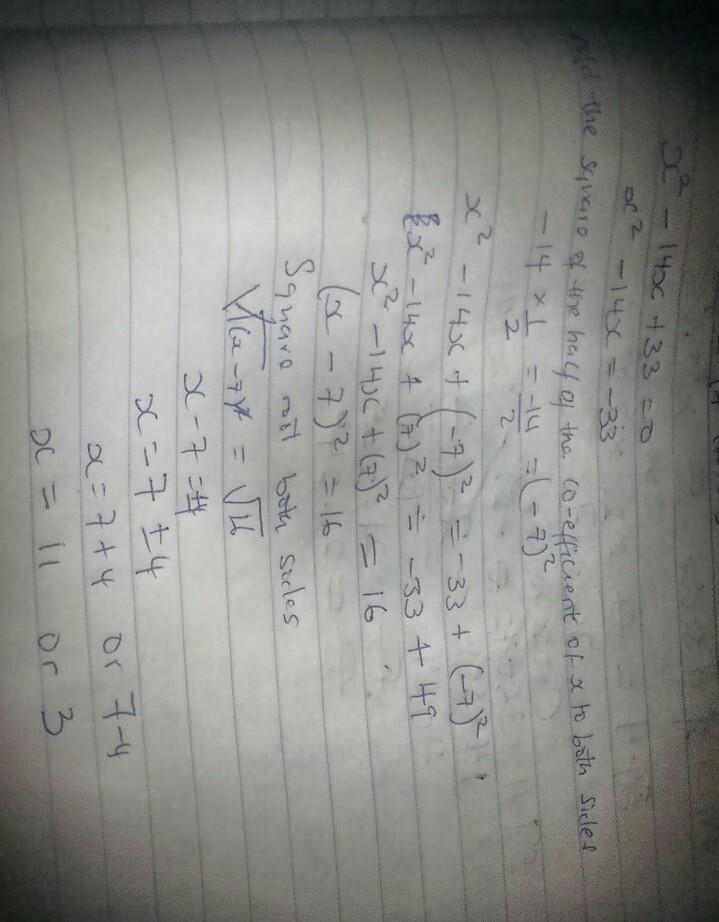 x² - 14x + 33 = 0
x² - 14x = -33
the square of the half of the co-efficient of x to both sides
-14 × 1/2 = -14/2 = (-7)²
x² - 14x + (-7)² = -33 + (-7)²
x² - 14x + (7)² = -33 + 49
x² - 14x + (7)² = 16
(x - 7)² = 16
Square root both sides
√(x-7)² = √16
x - 7 = ±4
x = 7 ± 4
x = 7 + 4 or 7 - 4
x = 11 or 3